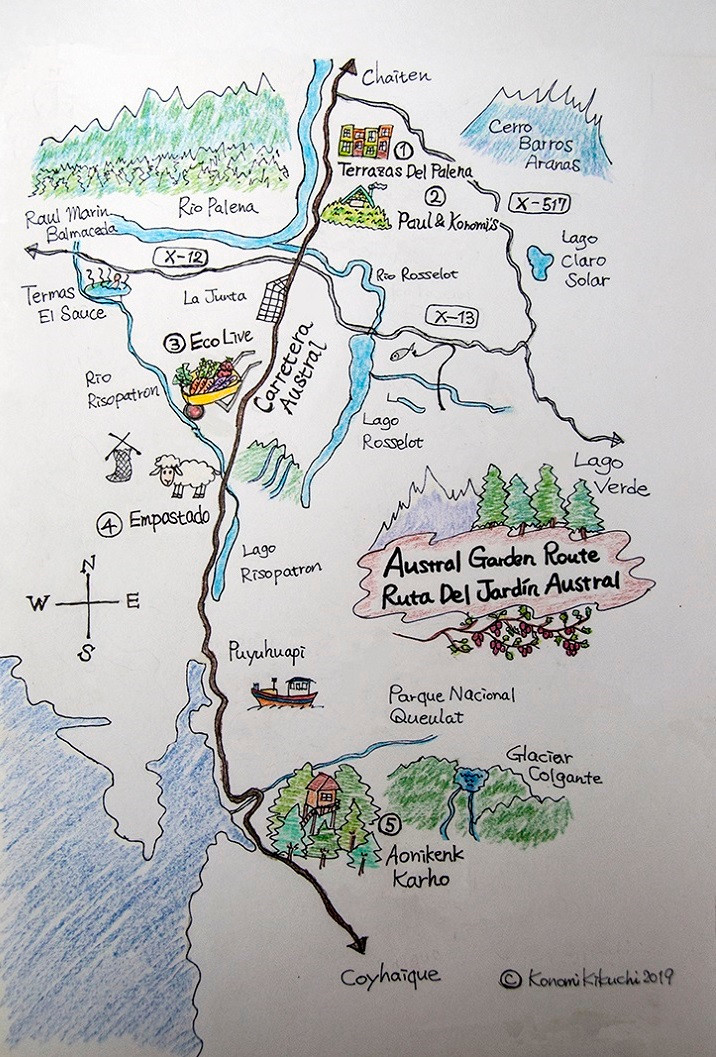 Chaiten
Cerro
Barros
Aranas
①
Terrazas Del Palena
②
Paul & Konomi's
X-517
Raul Marin
Balmaceda
Rio Palena
X-12
Rio Rosselot
Lago
Claro
Solar
Termas
El Sauce
La Junta
X-13
③ Eco Live
Carretera
Austral
Rio
Risopatron
Lago
Rosselot
Lago
Verde
④ Empastado
Austral Garden Route
Ruta Del Jardín Austral
Lago
Risopatron
N
W E
S
Puyuhuapi
Parque Nacional
Queulat
Glaciar
Colgante
⑤
Aonikenk
Karho
Coyhaique
© Konomi Kikuchi 2019